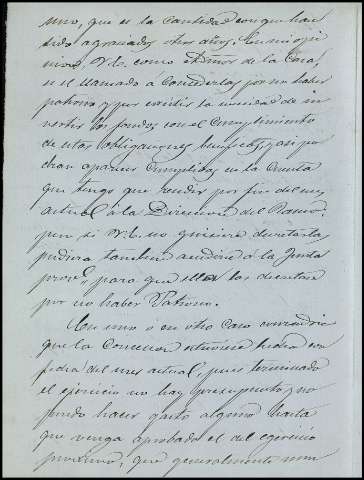 uno, que es la cantidad con que han
sido agraciados otros años. En mi opi
nion, V.E. como de la Casa,
es el llamado á Concederlas por no haber
patrono y por existir la necesidad de in
vertir los fondos con el Cumplimiento
de estas obligaciones beneficas, y asi po
dran aparecer Cumplidas en la Cuenta
que tengo que rendir por fin del mes
actual á la Direccion del Ramo:
pero si V.E. no quisiera decretarlas
pudiera tambien acudirse á la Junta
provl. para que ella las decretara
por no haber Patrono.
En uno o en otro Caso convendria
que la Concesion estuviese hecha
del mes actual, pues terminado
el ejercicio no hay presupuesto y no
puedo hacer gasto alguno hasta
que venga aprobado el del egercicio
proximo, que generalmente